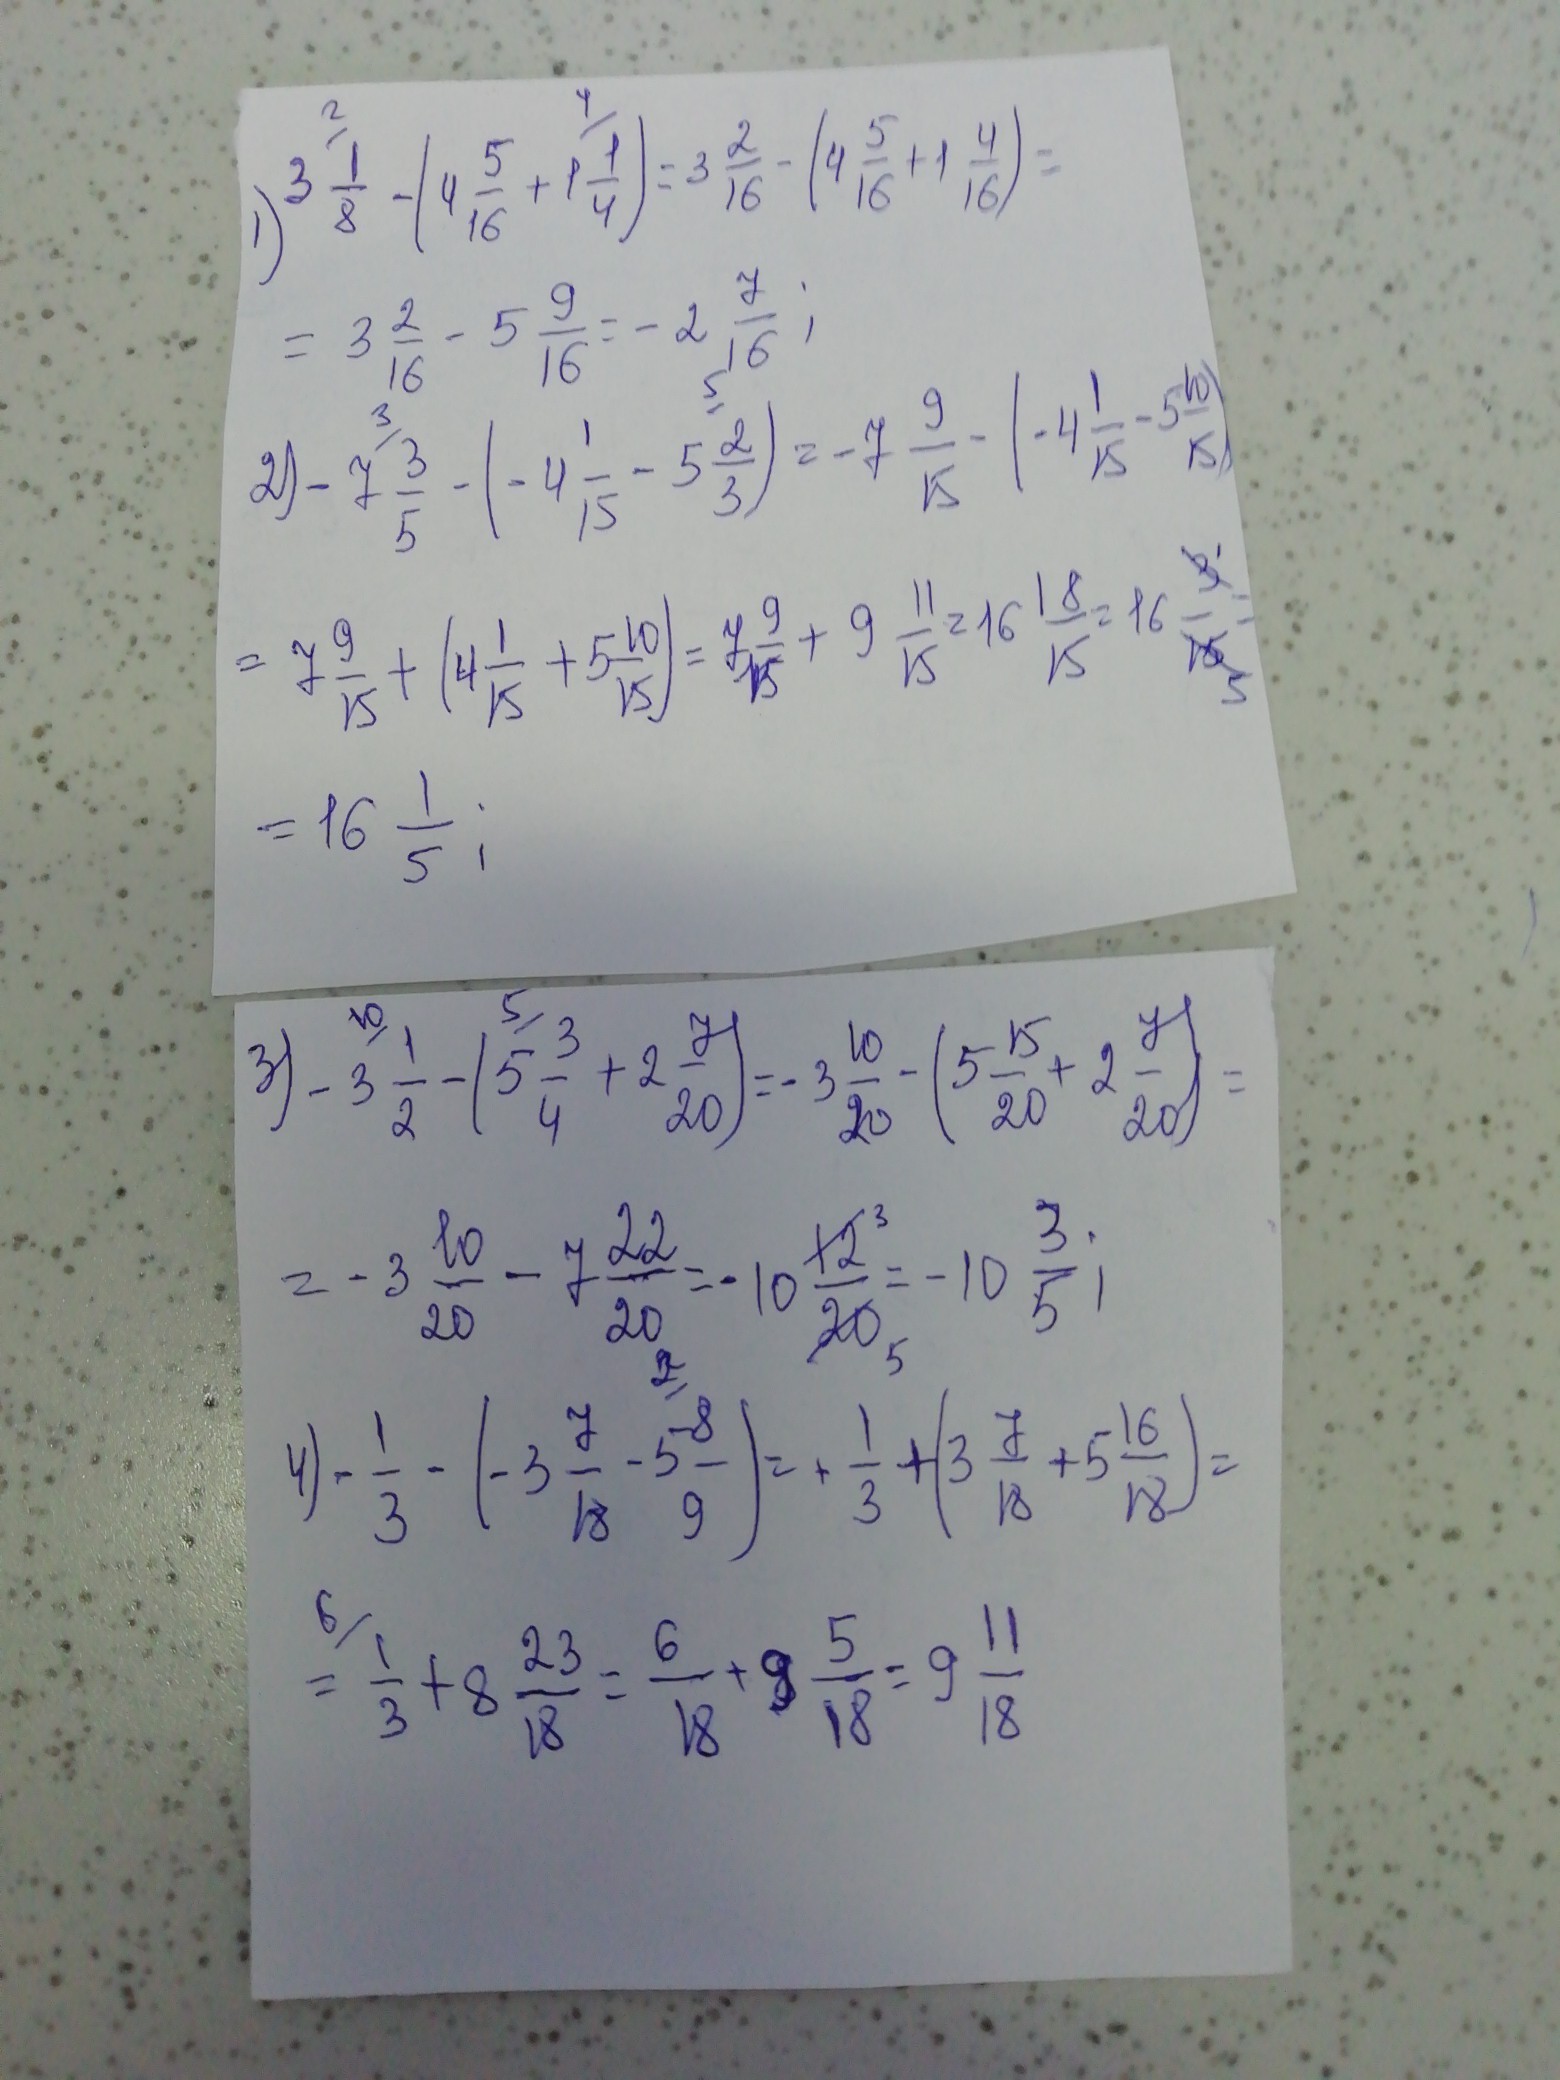 1) 3 1/8 - (4 5/16 + 1 1/4) = 3 2/16 - (4 5/16 + 1 4/16) =
= 3 2/16 - 5 9/16 = - 2 7/16 ;
2) - 7 3/5 - (- 4 1/15 - 5 2/3) = - 7 9/15 - (- 4 1/15 - 5 10/15)
= 7 9/15 + (4 1/15 + 5 10/15) = 7 9/15 + 9 11/15 = 16 18/15 = 16 3/15 =
= 16 1/5 ;
3) - 3 1/2 - (5 3/4 + 2 7/20) = - 3 10/20 - (5 15/20 + 2 7/20) =
= - 3 10/20 - 7 22/20 = - 10 12/20 = - 10 3/5 ;
4) - 1/3 - (- 3 7/18 - 5 8/9) = + 1/3 + (3 7/18 + 5 16/18) =
= 1/3 + 8 23/18 = 6/18 + 9 5/18 = 9 11/18